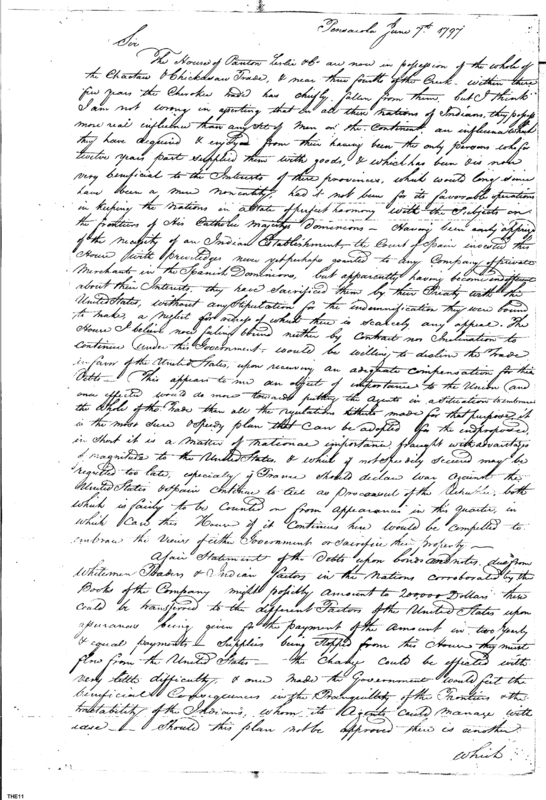 Pensacola June 7th 1797
Sir
The House of Panton Leslie & Co. are now in possession of the whole of
the Choctaw & Chickasaw Trade, & near three fourths of the Creek. within these
few years the Cherokee trade has chiefly fallen from them, but I think
I am not wrong in asserting that in all these Nations of Indians, they possess
more real influence than any set of Men on the Continent an influence which
they have acquired & enjoyed from their having been the only persons who for
twelve years past supplied them with goods, & which has been
very beneficial to the Interests of these provinces, which would long since
have been a mere nonentity, had it not been for its favorable operations
in keeping the Nations in a state of perfect harmony with the Subjects on
the frontiers of His Catholic Majestys Dominions — Having been early apprised
of the necessity of an Indian Establishment the Court of Spain invested this
House with priviledges never yet perhaps granted to any Company of private
Merchants in the Spanish Dominions, but apparently having become indifferent
about their Interests, they have sacrificed them by their Treaty with the
United States, without any Stipulation for the indemnification they were bound
to make, a neglect for of which there is scarcely any appeal. The
House I believe now bound neither by Contract nor Inclination to
continue under this Government, would be willing to decline the Trade
in favor of the United States, upon receiving an adequate compensation for their
Debts — This appears to me an object of importance to the Union (and
once effected would do more towards putting the Agents in a situation to embrace
the whole of the Trade than all the regulations made for that purpose) it
is the most sure & speedy plan that can be adopted for the end proposed,
in short it is a matter of National importance, fraught with advantages
& magnitude to the United States, & which if not speedily secured may be
regretted too late, especially if France should declare war against the
United States & Spain continue to act as proconsul of the Republic, both
which is fairly to be counted on from appearances in this quarter, in
which case this House if it continues here would be compelled to
embrace the views of either Government or sacrifice their property —
A fair Statement of the Debts upon bonds and notes, due from
Whitemen Traders & Indian factors in the Nations corroborated by the
Books of the Company might possibly amount to 200000 Dollars these
could be transferred to the different Factors of the United States upon
assurances being given for the payment of the Amount in two yearly
& equal payments — Supplies being stopped from this House they must
flow from the United States — the Change could be effected with
very little difficulty, & once made the Government would feel the
beneficial Consequences in the Tranquillity of the Frontiers & the
tractability of the Indians, whom its Agents could manage with
ease — Should this plan not be approved there is another
which
THE11